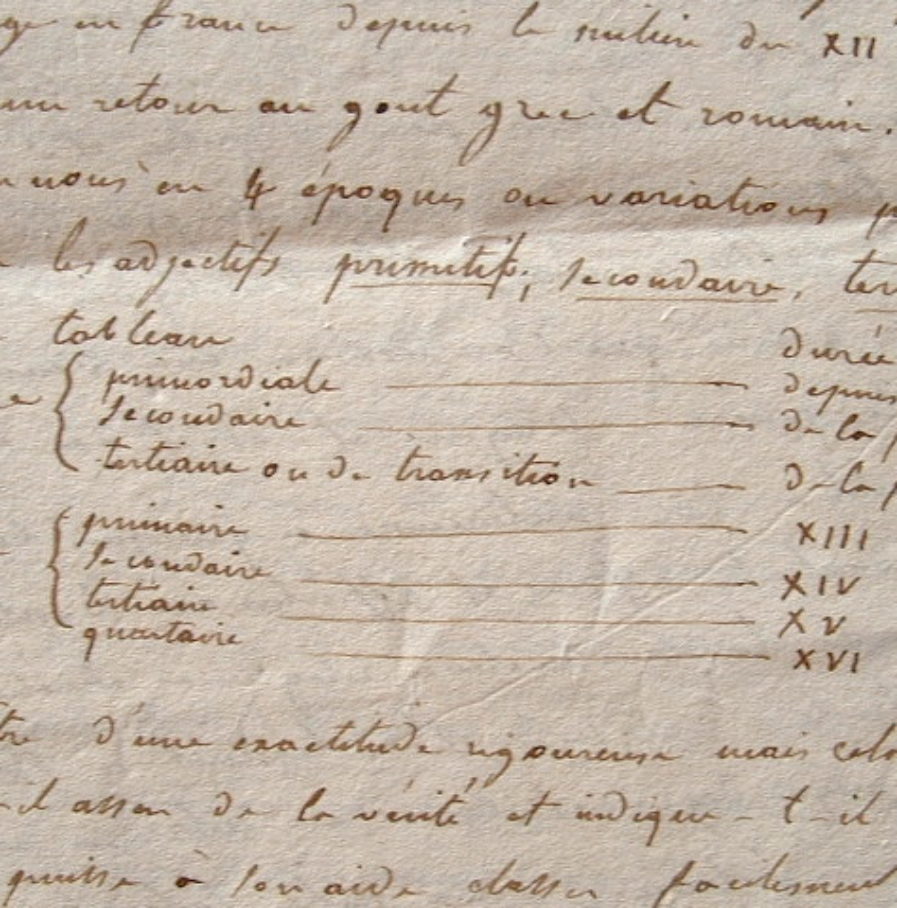 en france depuis le milieu du XII
un retour au gout grec et romain.
nous en 4 époques ou variations
les adjectifs primitif, secondaire, ter
tableau durée
primordiale depuis
secondaire de la
tertiaire ou de transition de la
primaire XIII
secondaire XIV
tertiaire XV
quartaire XVI
d'une exactitude rigoureuse mais cela
il assez de la vérité et indique-t-il
puisse à son aide classer facilement